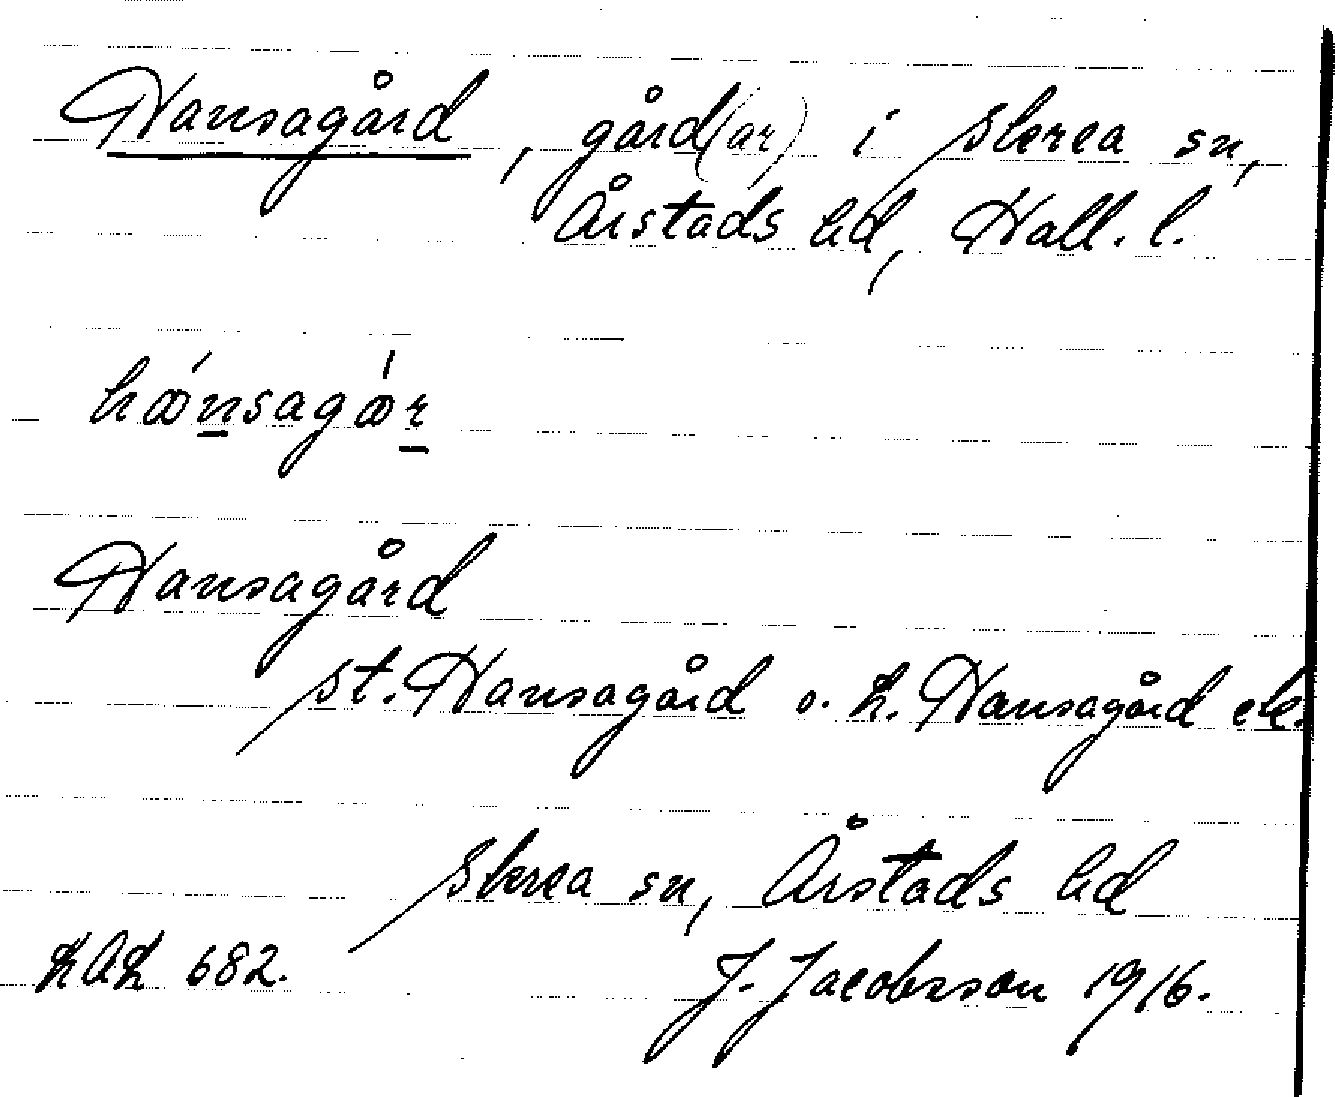 Hansagård, gård(ar) i Skrea sn,
Årstads hd, Hall. l.
Hansagård
St. Hansagård o. L. Hansagård
Skrea sn, Årstads hd
LAL 682. J. Jacobsson 1916.